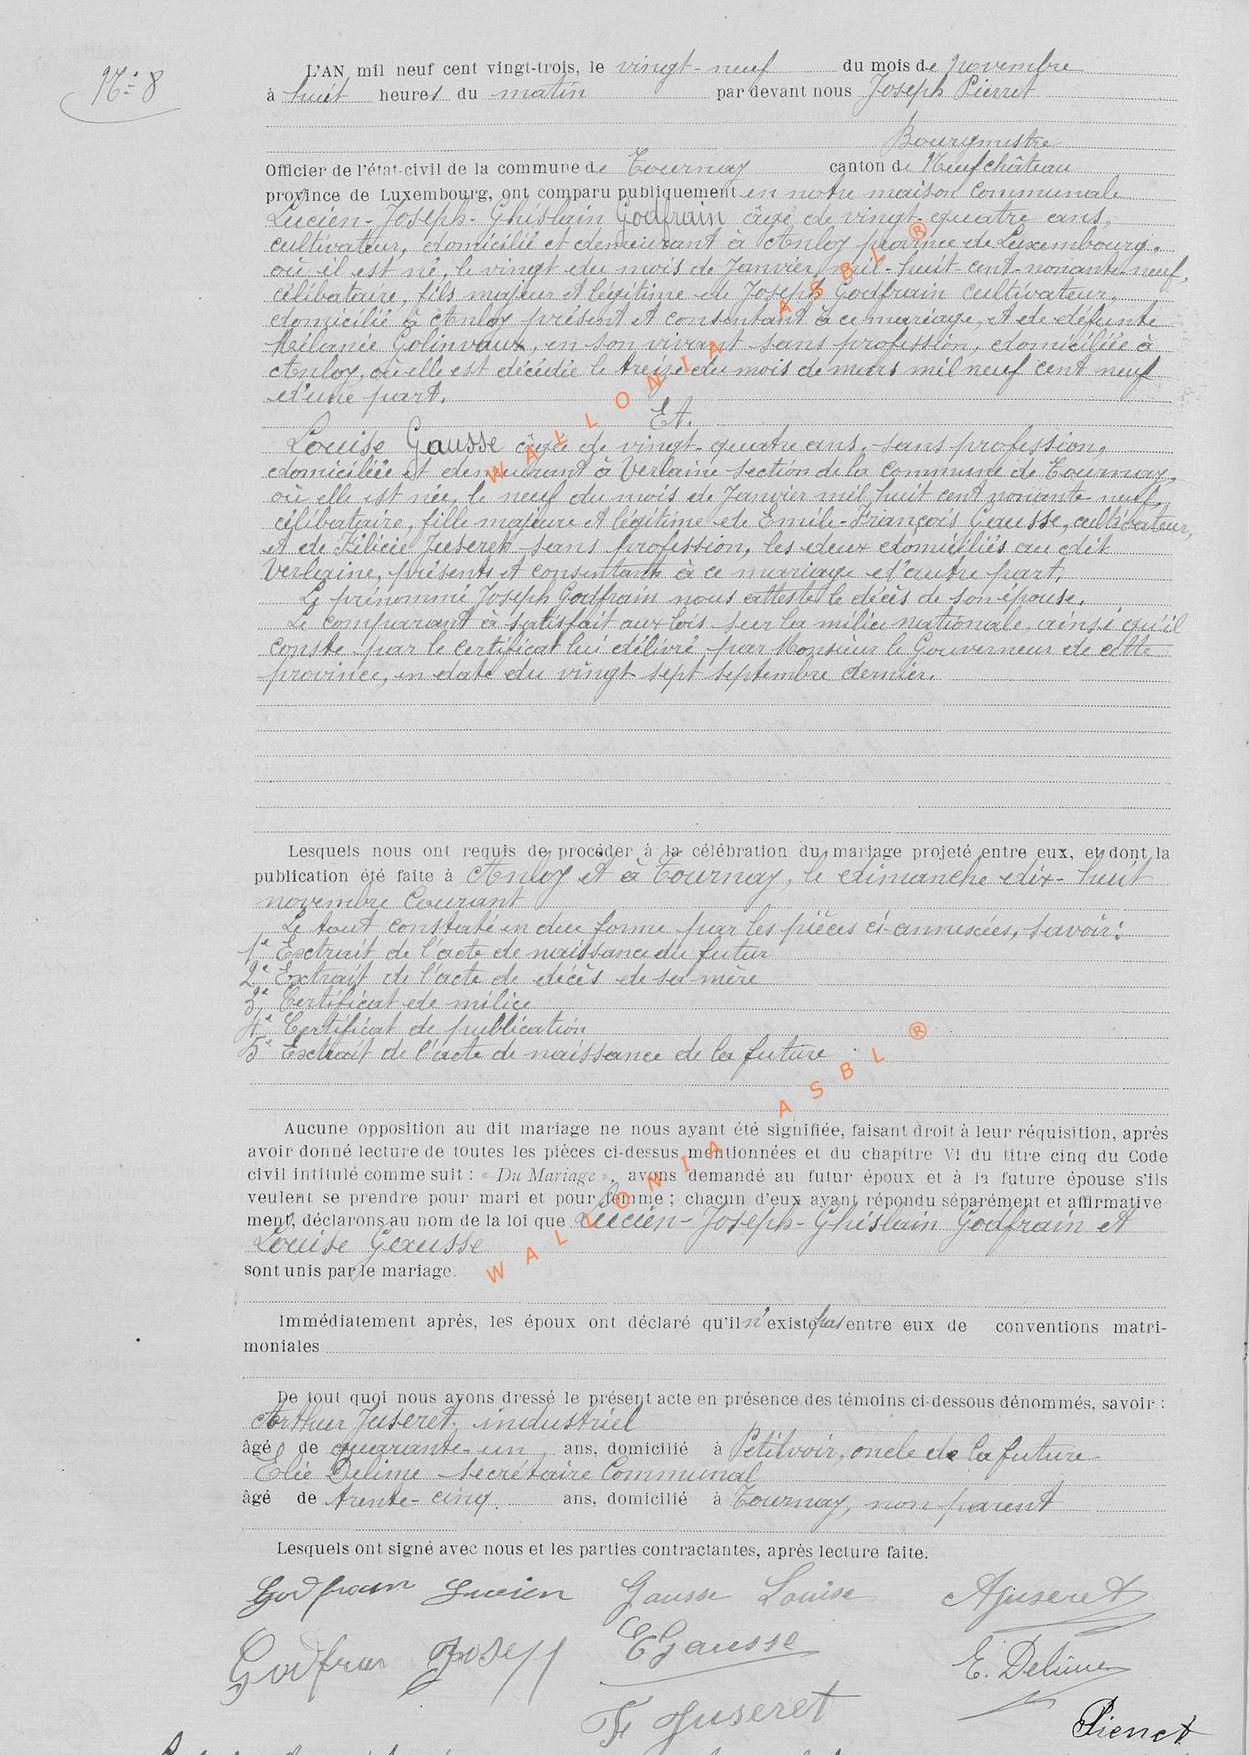 N° 8
L'AN mil neuf cent vingt-trois, le vingt-neuf du mois de novembre
à huit heures du matin par devant nous Joseph Pierret
Bourgmestre
Officier de l'état-civil de la commune de Tournay canton de Neufchâteau
province de Luxembourg, ont comparu publiquement en notre maison communale
Lucien-Joseph-Ghislain Godfrain âgé de vingt-quatre ans,
cultivateur, domicilié et demeurant à Anloy province de Luxembourg,
où il est né, le vingt du mois de Janvier mil-huit-cent-nonante-neuf,
célibataire, fils majeur et légitime de Joseph Godfrain cultivateur,
domicilié à Anloy présent et consentant à ce mariage, et de défunte
Mélanie Golinvaux, en son vivant sans profession, domiciliée à
Anloy, où elle est décédée le treize du mois de mars mil neuf cent neuf
d'une part.
Et.
Louise Gausse âgée de vingt-quatre ans, sans profession,
domiciliée et demeurant à Verlaine section de la commune de Tournay,
où elle est née, le neuf du mois de Janvier mil huit cent nonante neuf,
célibataire, fille majeure et légitime de Emile-François Gausse, cultivateur,
et de Félicie Juseret sans profession, les deux domiciliés au dit
Verlaine, présents et consentants à ce mariage d'autre part.
Le prénommé Joseph Godfrain nous atteste le décès de son épouse.
Le comparant à satisfait aux lois sur la milice nationale, ainsi qu'il
conste par le certificat lui délivré par Monsieur le Gouverneur de cette
province, en date du vingt sept septembre dernier.
Lesquels nous ont requis de procéder à la célébration du mariage projeté entre eux, et dont la
publication été faite à Anloy et à Tournay, le dimanche dix-huit
novembre Courant
Le tout constaté en due forme par les pièces ci-annexées, savoir:
1° Extrait de l'acte de naissance du futur
2° Extrait de l'acte de décès de sa mère
3° Certificat de milice
4° Certificat de publication
5° Extrait de l'acte de naissance de la future
Aucune opposition au dit mariage ne nous ayant été signifiée, faisant droit à leur réquisition, après
avoir donné lecture de toutes les pièces ci-dessus mentionnées et du chapitre VI du titre cinq du Code
civil intitulé comme suit : « Du Mariage », avons demandé au futur époux et à la future épouse s'ils
veulent se prendre pour mari et pour femme ; chacun d'eux ayant répondu séparément et affirmative
ment, déclarons au nom de la loi que Lucien-Joseph-Ghislain Godfrain et
Louise Gausse
sont unis par le mariage.
Immédiatement après, les époux ont déclaré qu'il n'existe pas entre eux de conventions matri-
moniales
De tout quoi nous avons dressé le présent acte en présence des témoins ci-dessous dénommés, savoir :
Arthur Juseret, industriel
âgé de quarante-un ans, domicilié à Petitvoir, oncle de la future
Elie Delime secrétaire Communal
âgé de trente-cinq ans, domicilié à Tournay, non parent
Lesquels ont signé avec nous et les parties contractantes, après lecture faite.
Godfrain Lucien Gausse Louise AJuseret
Godfrain Joseph EGausse E. Delime
F Juseret
Pierret
WALLONIA ASBL ®
WALLONIA ASBL ®